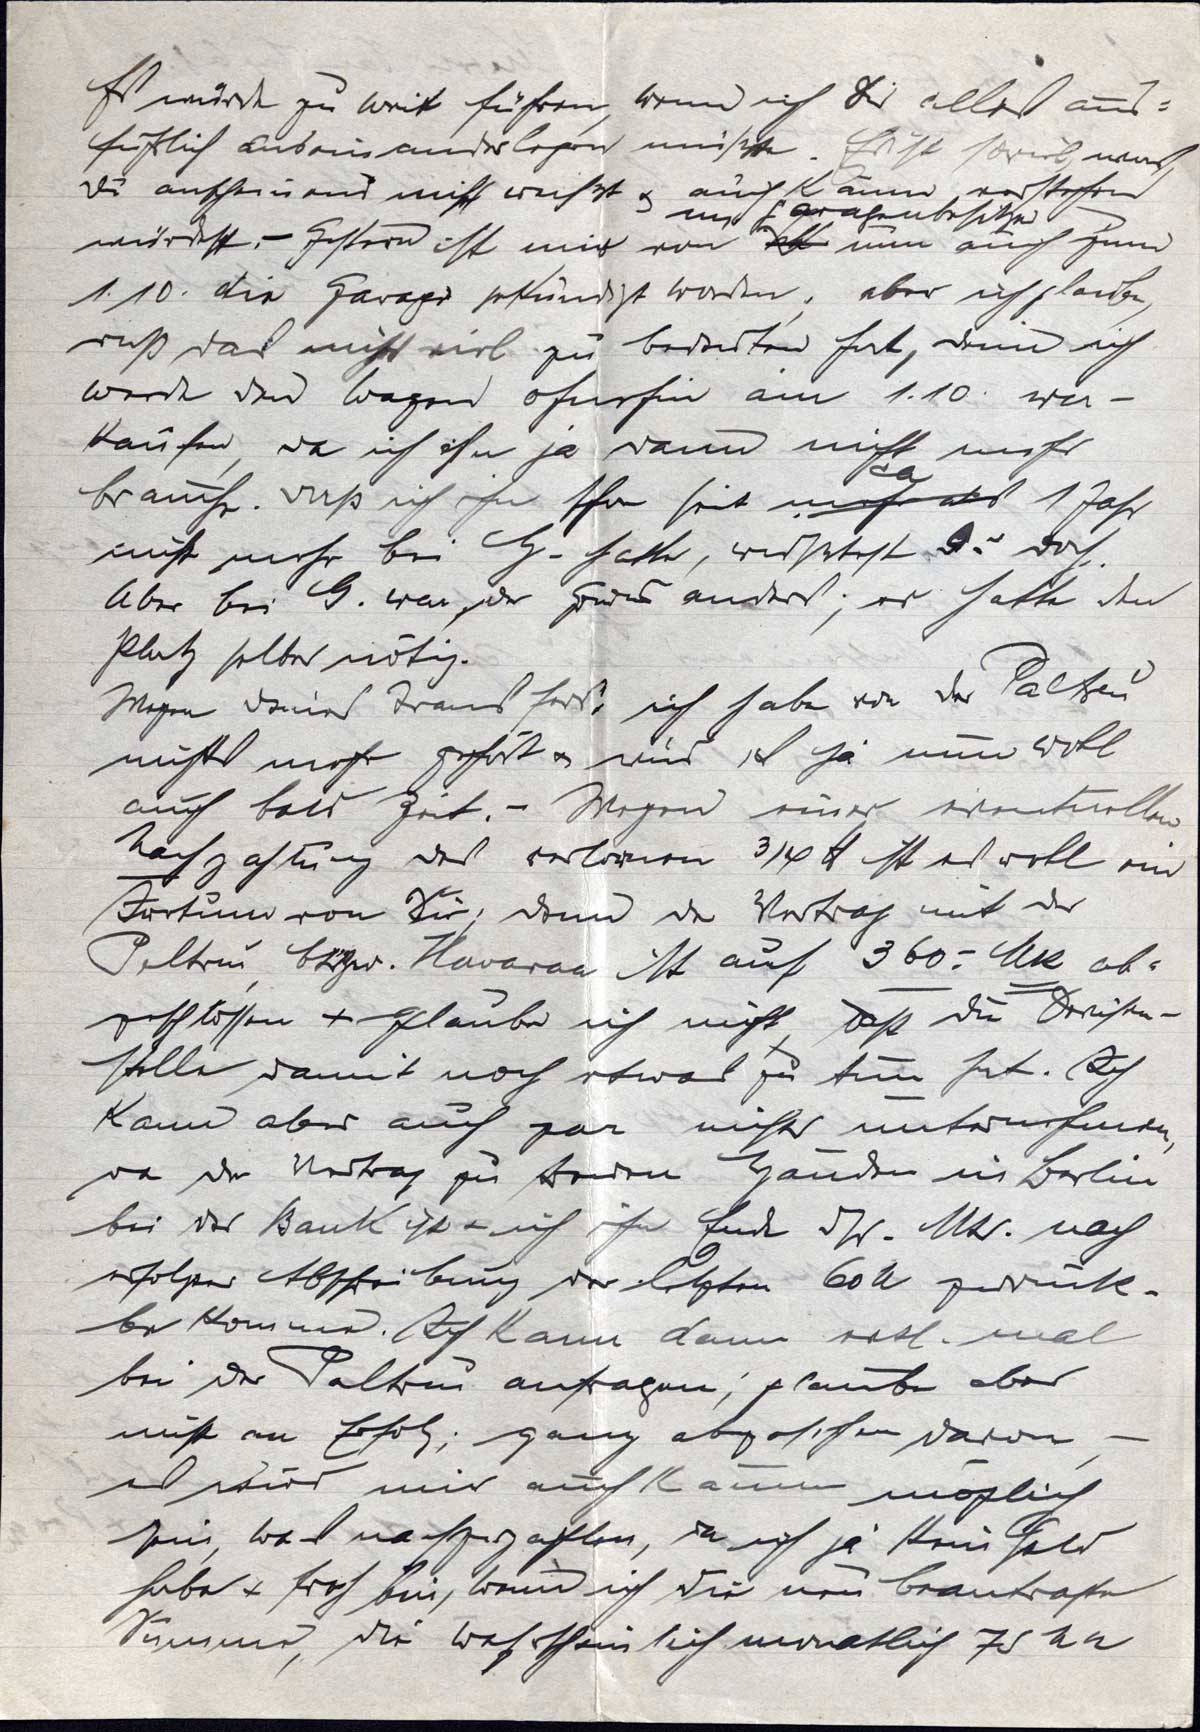 Es würde zu weit führen, wenn ich Dir alles aus=
führlich auseinanderlegen müsste. Es ist soviel, was
Du anscheinend nicht weisst & auch kaum verstehen
würdest. – Gestern ist mir von nun auch zum
m. Garagenbesitzer
1.10. die Garage gekündigt worden, aber ich glaube,
daß das nicht viel zu bedeuten hat, denn ich
werde den Wagen ohnehin am 1.10. ver-
kaufen, da ich ihn ja dann nicht mehr
brauche. Daß ich ihn schon seit ca 1 Jahr
nicht mehr bei G. hatte, wusstest Du doch.
Aber bei G. war der Grund anders; er hatte den
Platz selber nötig.
Wegen Deines Transfers: ich habe von der Paltreu
nichts mehr gehört & wird es ja nun wohl
auch bald Zeit. – Wegen einer eventuellen
Nachzahlung des verlorenen ist es wohl ein
Irrtum von Dir; denn der Vertrag mit der
Paltreu, bezw. Haavara ist auf 360.- Mk ab=
geschlossen + glaube ich nicht, daß die Devisen-
stelle damit noch etwas zu tun hat. Ich
kann aber auch gar nichts unternehmen,
da der Vertrag zu treuen Händen in Berlin
bei der Bank ist & ich ihn Ende ds. Mts. nach
erfolgter Abschreibung der letzten 60 zurück-
bekomme. Ich kann dann evtl. mal
bei der Paltreu anfragen; glaube aber
nicht an Erfolg; ganz abgesehen davon, –
es wird mir auch kaum möglich
sein, was nachzuzahlen, da ich ja kein Geld
habe + froh bin, wenn ich die neu beantragte
Summe, die wahrscheinlich monatlich 75